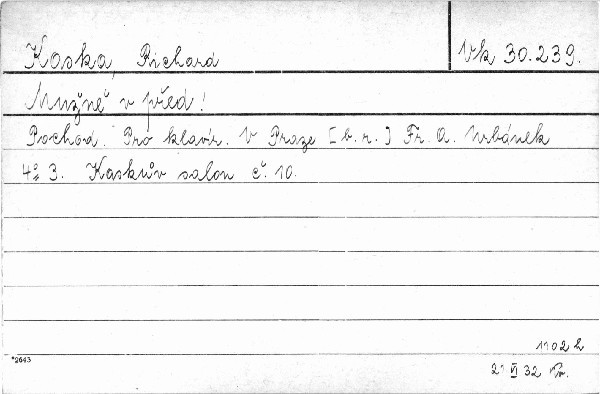 Kaska, Richard
Vk 30.239.
Mužně v před!
Pochod. Pro klavír. V Praze [b. r.] Fr. A. Urbánek
4° 3. Kaskův salon č. 10.
1102 h
*2643
21 VI 32